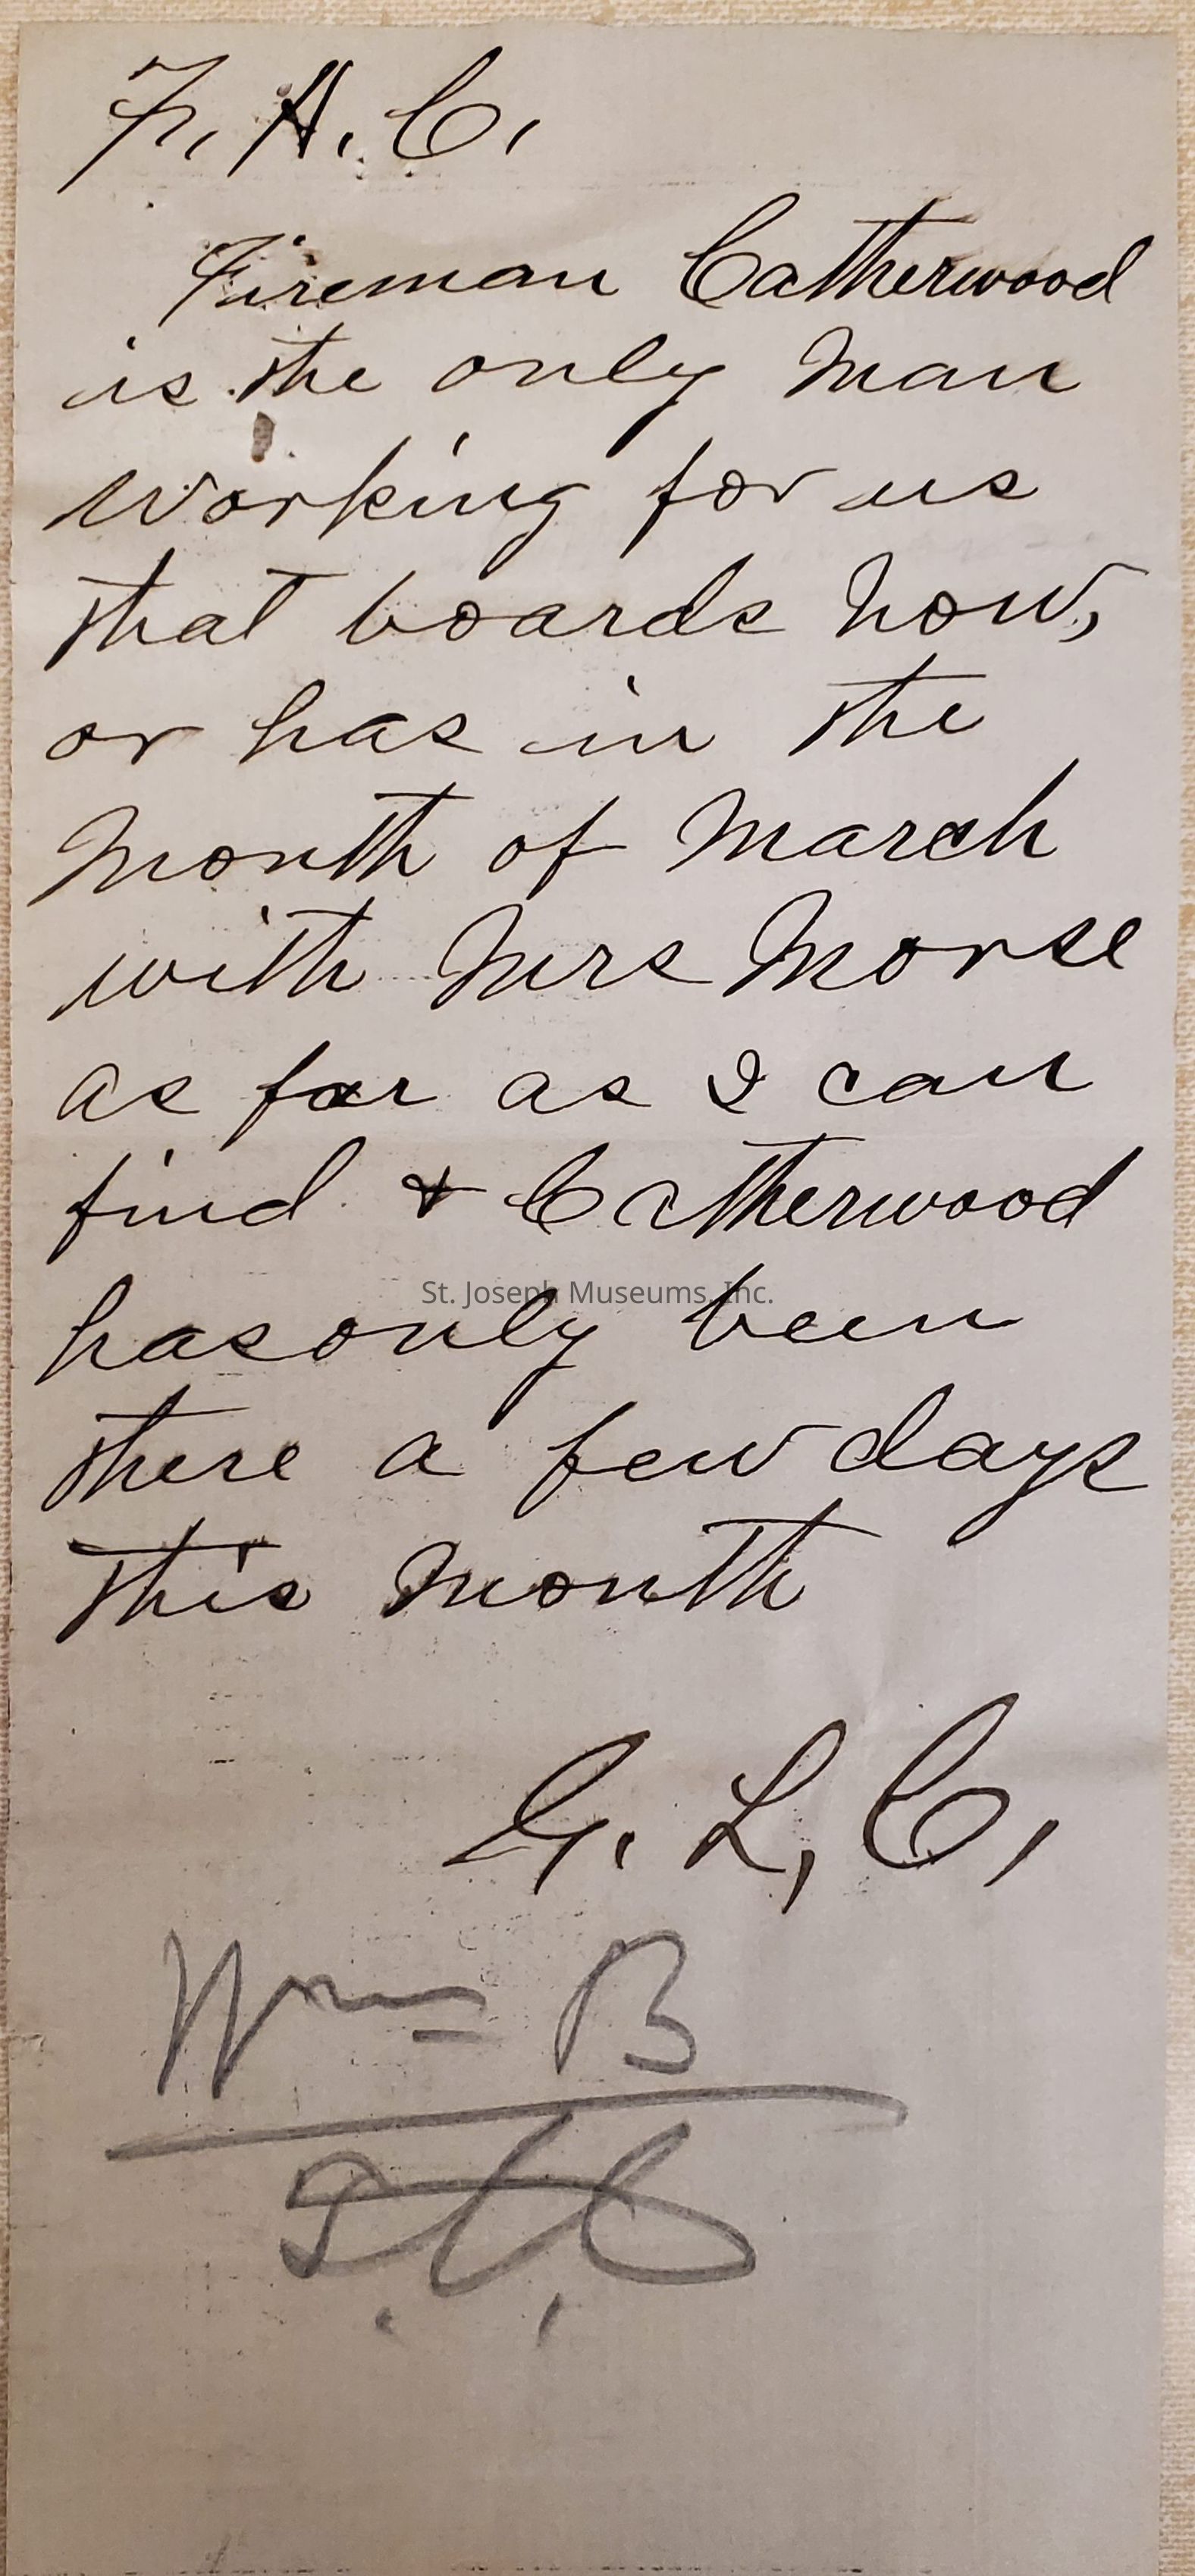 F. H. C.
Fireman Catherwood
is the only man
working for us
that boards now,
or has in the
month of March
with Mrs Morse
as far as I can
find & Catherwood
St. Joseph Museums, Inc.
has only been
there a few days
this month
G. L. C.
Wm = B